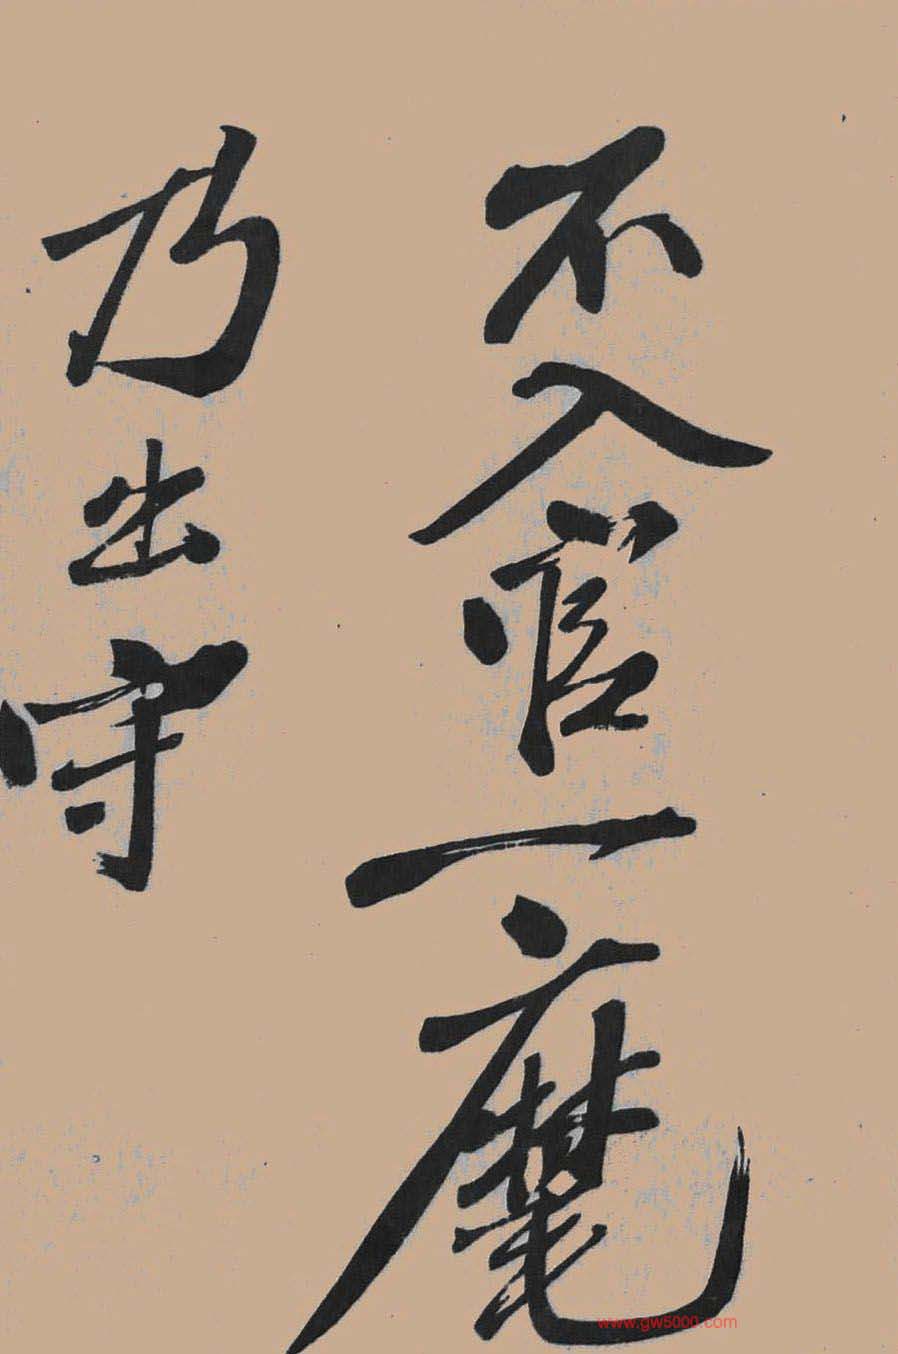 不入官一麾
乃出守
www.gw5000.com